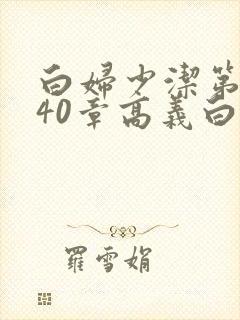 白婦少潔第
40章高義白
羅雪娟